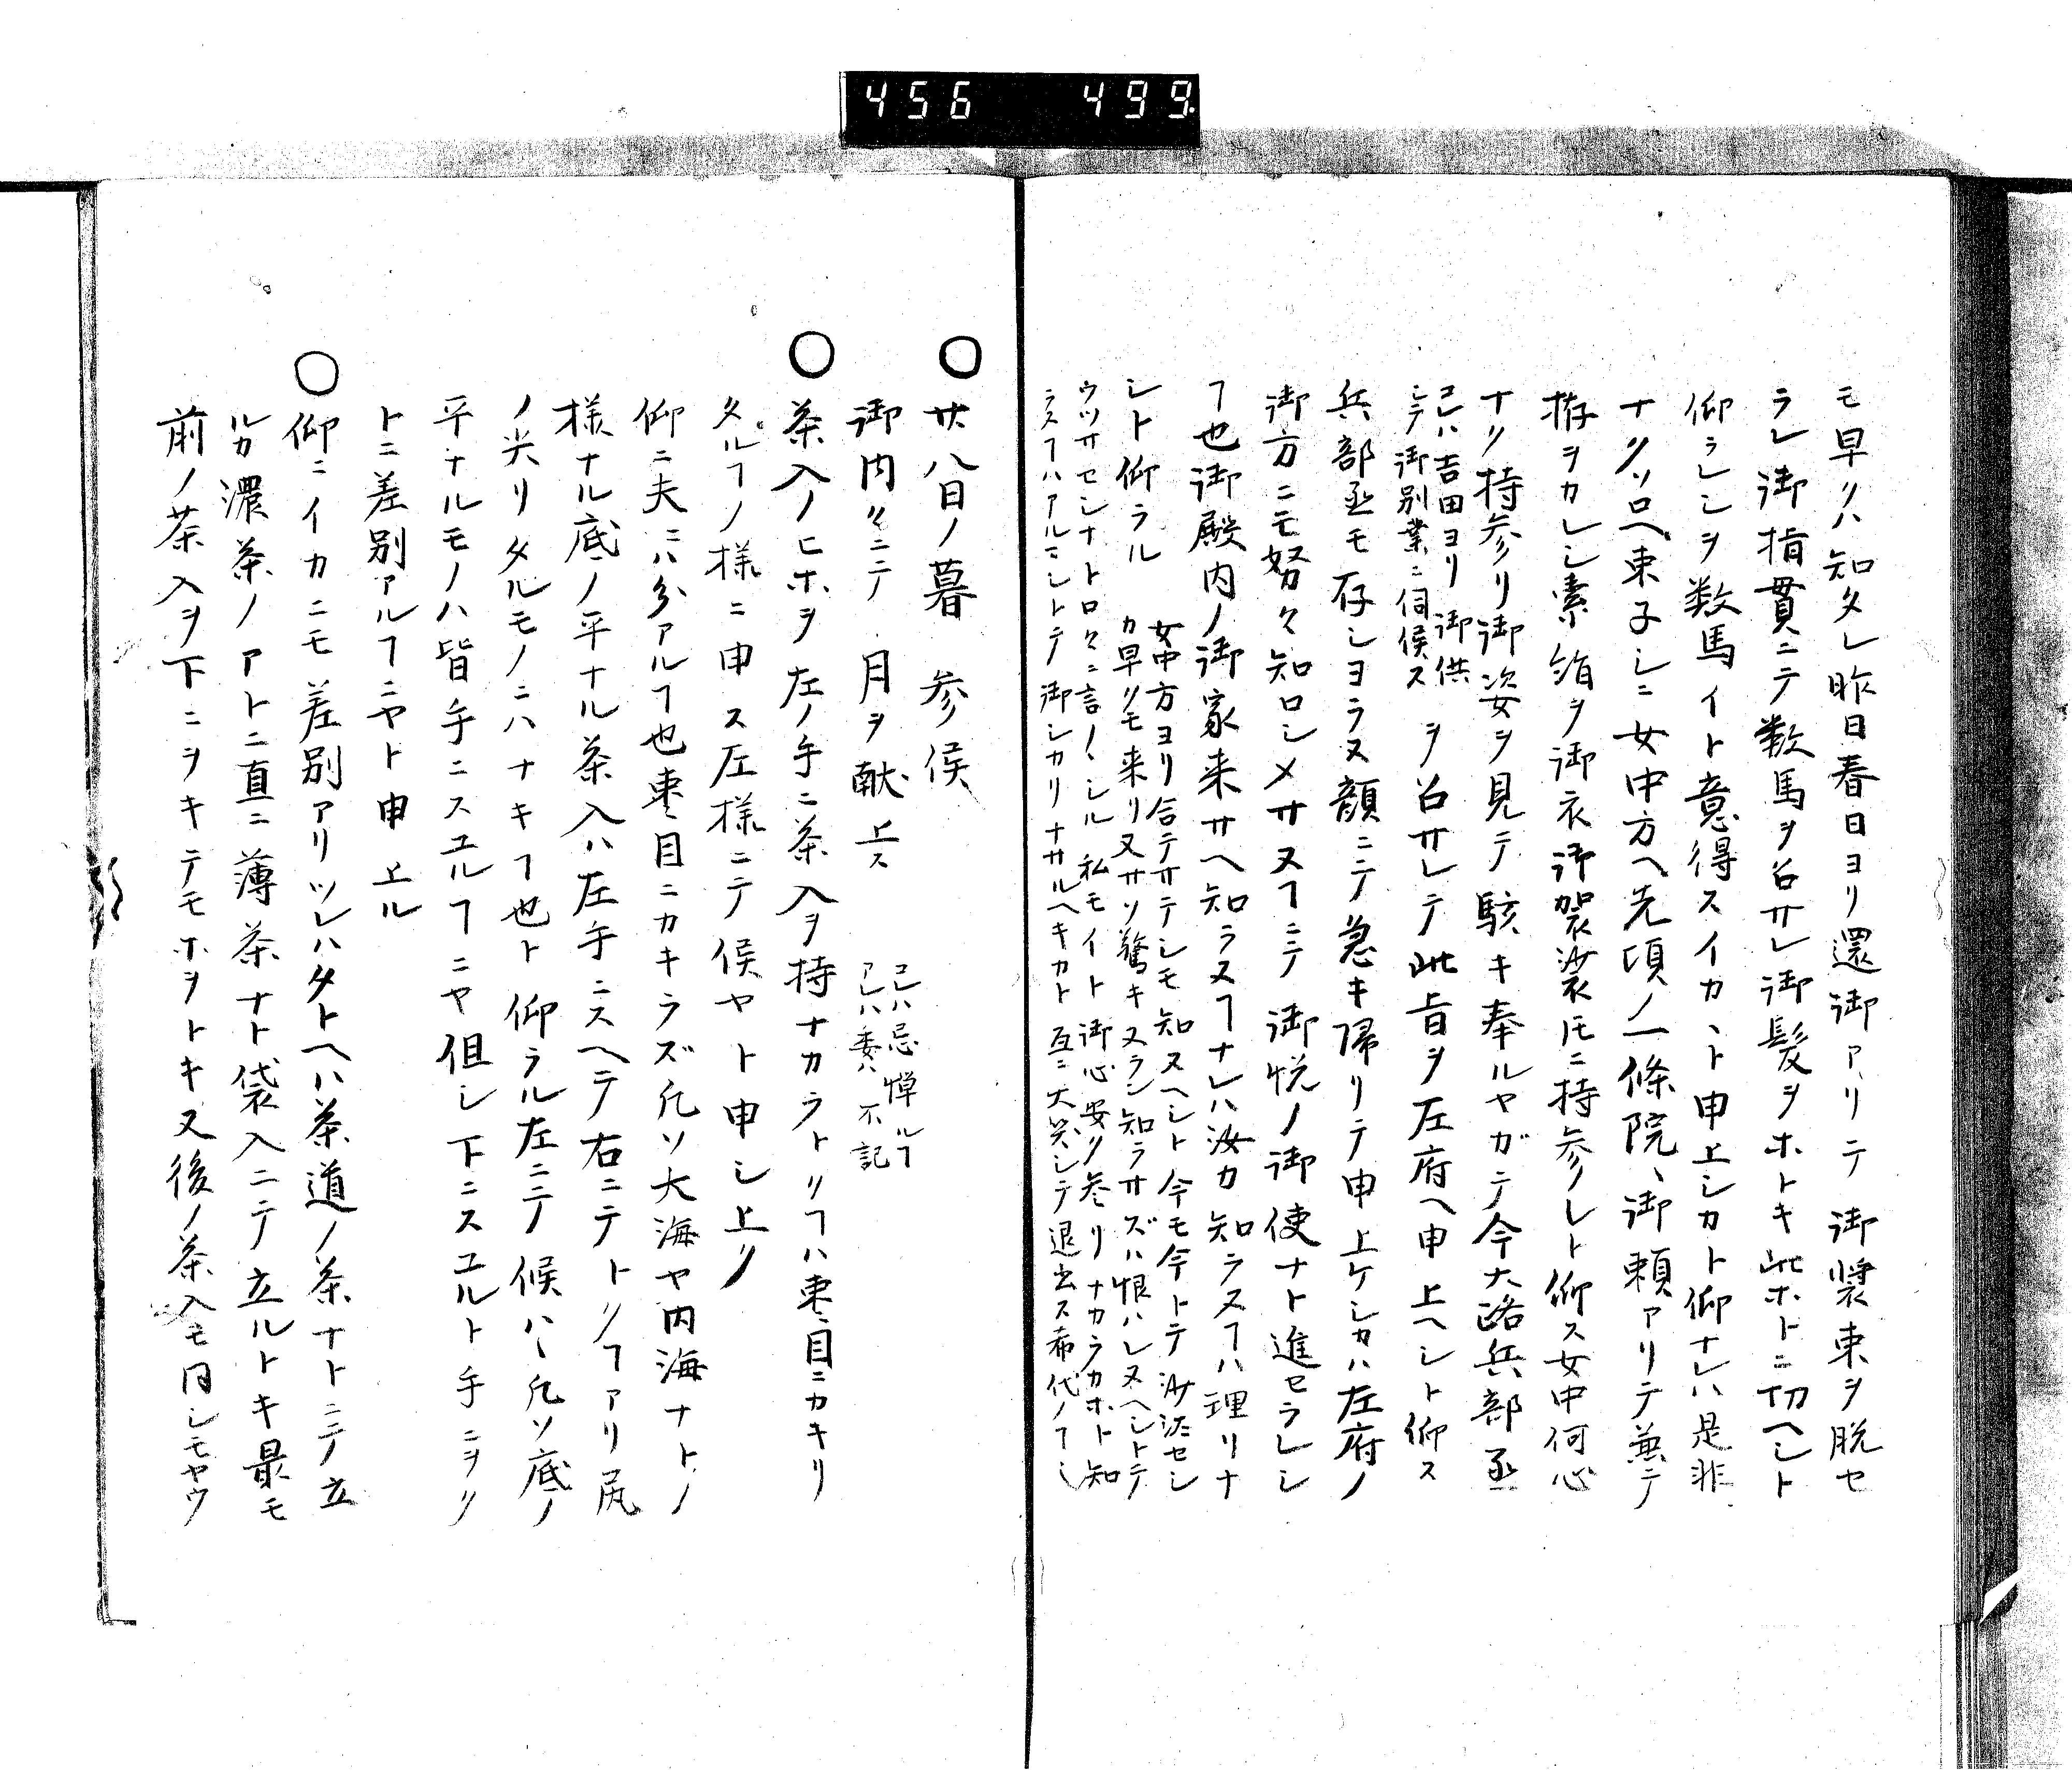 456 499
モ早クハ知タレ昨日春日ヨリ還御アリテ御装束ヲ脱セ
ラレ御指貫ニテ数馬ヲ召サレ御髪ヲホトキ此ホトニ切ヘシト
仰ラレシヲ数馬イト意得スイカヽト申上シカト仰ナレハ是非
ナクソロヘ束子シニ女中方ヘ先頃ノ一條院ヽ御頼アリテ兼テ
拵ヲカレシ素絹ヲ御衣御袈裟𪜈ニ持参クレト仰ス女中何心
ナク持参リ御姿ヲ見テ駭キ奉ルヤガテ今大路兵部丞
コレハ吉田ヨリ御供
シテ御別業ニ伺候ス
ヲ召サレテ此旨ヲ左府ヘ申上ヘシト仰ス
兵部丞モ存シヨラヌ顔ニテ急キ帰リテ申上ケシカハ左府ノ
御方ニモ努々知ロシメサヌヿニテ御悦ノ御使ナト進セラレシ
ヿ也御殿内ノ御家来サヘ知ラヌヿナレハ汝カ知ラヌヿハ理リナ
シト仰ラル
女中方ヨリ合テサテシモ知ヌヘシト今モ今トテ沙汰セシ
カ早クモ来リ又サソ驚キヌラン知ラサズハ恨ハレヌヘシトテ
ウツサセシナトロ々ニ言ノヽシル私モイト御心安ク参リナカラカホト知
ラヌヿハアルマシトテ御シカリナサルヘキカト互ニ大笑シテ退出ス希代ノヿヽ
○廿八日ノ暮参候
御内々ニテ月ヲ献上ス
コレハ忌憚ルヿ
アレハ委ハ不記
○茶入ノヒホヲ左ノ手ニ茶入ヲ持ナカラトクヿハ棗目ニカキリ
タルヿノ様ニ申ス左様ニテ候ヤト申シ上ク
仰ニ夫ニハ分アルヿ也棗目ニカキラズ凡ソ大海ヤ内海ナトノ
様ナル底ノ平ナル茶入ハ左手ニスヘテ右ニテトクヿアリ尻
ノ尖リタルモノニハナキヿ也ト仰ラル左ニテ候ハヽ凡ソ底ノ
平ナルモノハ皆手ニスユルヿニヤ但シ下ニスユルト手ニヲク
トニ差別アルヿニヤト申上ル
○仰ニイカニモ差別アリツレハタトヘハ茶道ノ茶ナトニテ立
ルカ濃茶ノアトニ直ニ薄茶ナト袋入ニテ立ルトキ最モ
前ノ茶入ヲ下ニヲキテモホヲトキ又後ノ茶入モ同シモヤウ